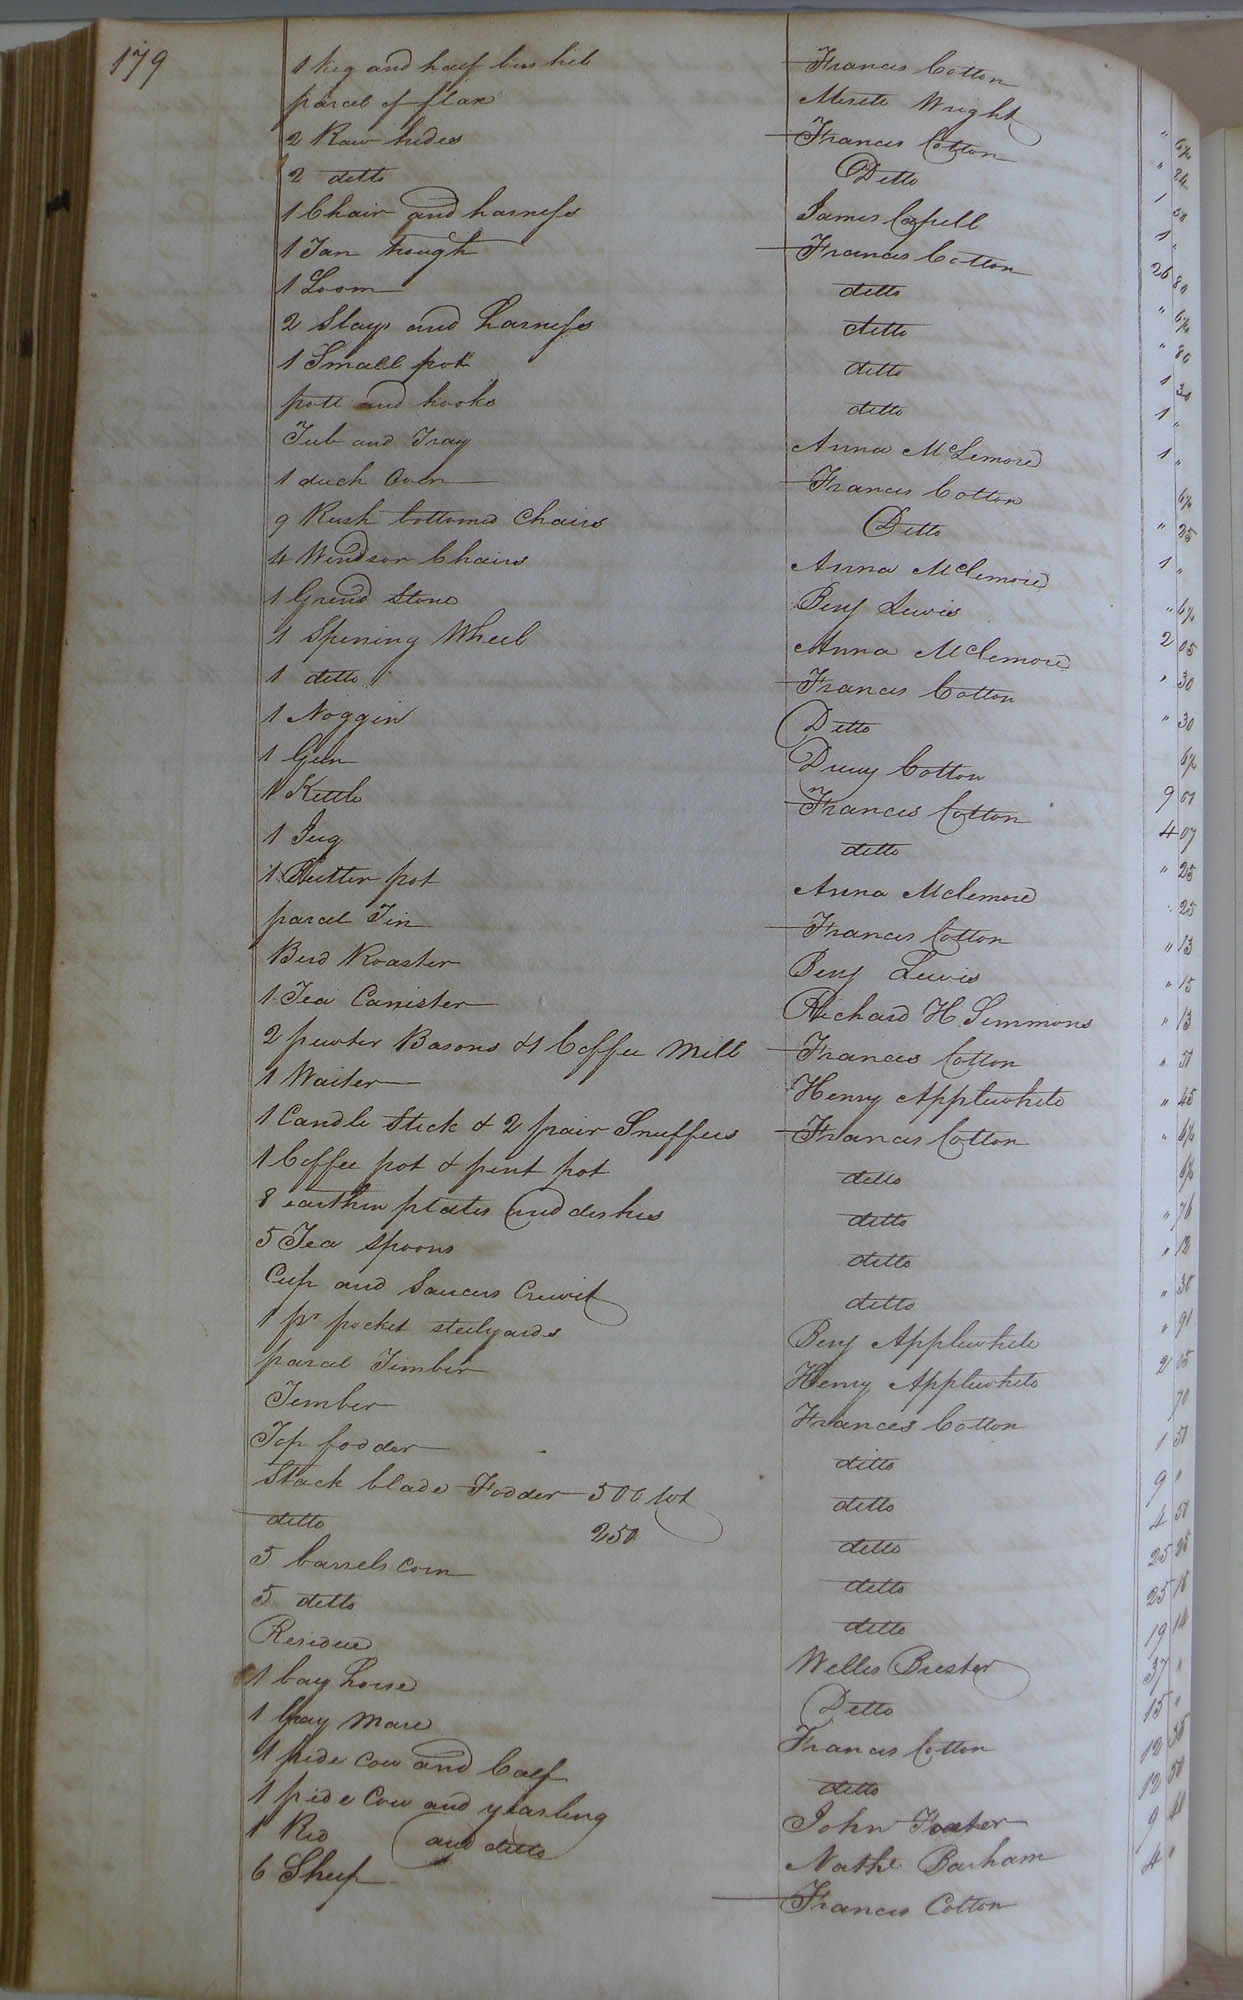 179
1 keg and half bushil Francis Cotton " 6¼
parcel of flax Merete Wright " 24
2 Raw hides Francis Cotton 1 50
2 ditto Ditto 1 "
1 Chair and harness James Capell 26 80
1 Tan trough Francis Cotton " 6¼
1 Loom ditto " 80
2 Slays and harness ditto 1 30
1 Small pot ditto 1 "
potts and hooks ditto 1 "
Tub and Tray Anna McLemore 6¼
1 duch Oven Francis Cotton " 25
9 Rush bottomed Chairs Ditto 1 "
4 Windsor Chairs Anna Mclemore " 6¼
1 Grind Stone Benj Lewis 2 05
1 Spining Wheel Anna Mclemore " 30
1 ditto Francis Cotton " 30
1 Noggin Ditto 6¼
1 Gun Drury Cotton 9 01
1 Kettle Francis Cotton 4 07
1 Jug ditto " 25
1 Butter pot Anna Mclemore " 25
parcel Tin Francis Cotton " 13
Bird Roaster Benj Lewis " 15
1 Tea Canister Richard H Simmons " 13
2 pewter Basons & 1 Coffee Mill Francis Cotton " 51
1 Waiter Henry Applewhite " 45
1 Candle Stick & 2 pair Snuffers Francis Cotton " 6¼
1 Coffee pot & pint pot ditto 6¼
8 earthin plates and dishes ditto " 76
5 Tea Spoons ditto " 12
Cup and Saucers Cruvit ditto " 30
1 pr pocket steelyards Benj Applewhite " 91
parcel Timber Henry Applewhite 2 05
Timber Francis Cotton 70
Top fodder ditto 1 51
Stack blade Fodder 500 wt ditto 9 "
ditto 250 ditto 4 50
5 barrels corn ditto 25 25
5 ditto ditto 25 18
Residue Willis Brister 19 14
1 bay horse Ditto 37 "
1 Gray Mare Francis Cotton 15 "
1 pide cow and Calf ditto 12 35
1 pide Cow and yearling John Foster 12 50
1 Red and ditto Nathl Barham 9 11
6 Sheep Francis Cotton 4 "